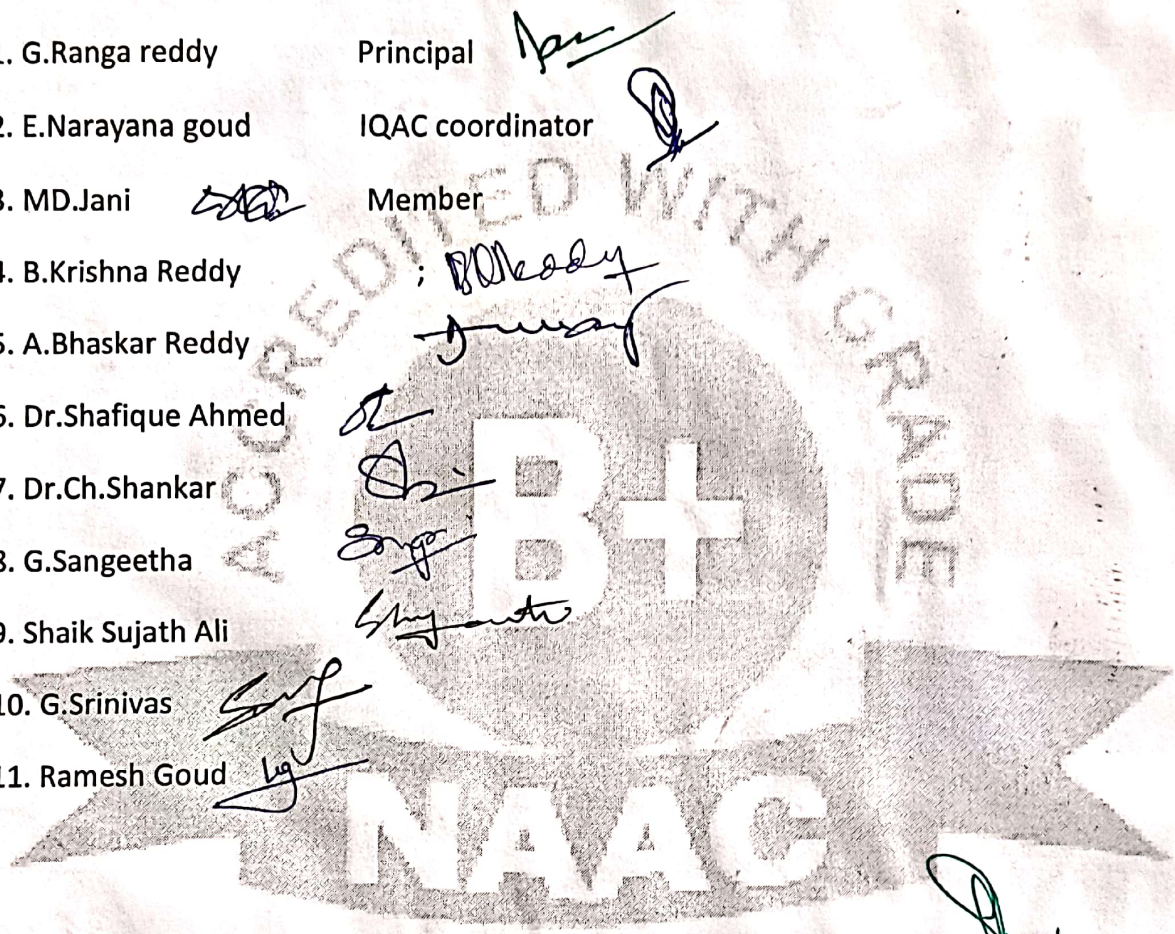 1. G.Ranga reddy Principal
2. E.Narayana goud IQAC coordinator
3. MD.Jani Member
4. B.Krishna Reddy ;
5. A.Bhaskar Reddy
6. Dr.Shafique Ahmed
7. Dr.Ch.Shankar
8. G.Sangeetha
9. Shaik Sujath Ali
10. G.Srinivas
11. Ramesh Goud
ACCREDITED WITH GRADE
B+
NAAC